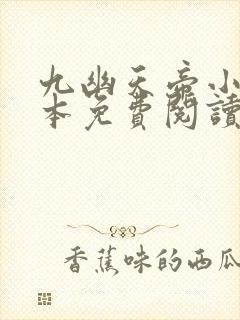 九幽天帝小
本免費閱讀
香蕉味的西瓜